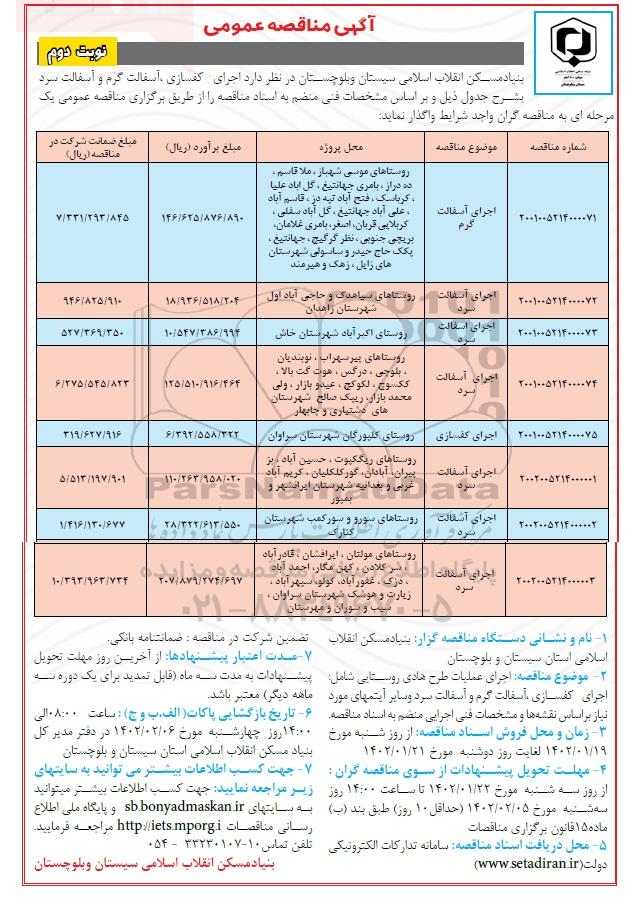 آگهی مناقصه عمومی
نوبت دوم
بنیادمسکن انقلاب اسلامی سیستان وبلوچستان در نظر دارد اجرای کفسازی ،آسفالت گرم و آسفالت سرد
بشرح جدول ذیل و بر اساس مشخصات فنی منضم به اسناد مناقصه را از طریق برگزاری مناقصه عمومی یک
مرحله ای به مناقصه گران واجد شرایط واگذار نماید:
شماره مناقصه
موضوع مناقصه
محل پروژه
مبلغ برآورد (ریال)
مبلغ ضمانت شرکت در
مناقصه (ریال)
۲۰۰۱۰۰۵۲۱۴۰۰۰۰۷۱
اجرای آسفالت
گرم
روستاهای موسی شهباز ، ملا قاسم ،
ده دراز ، بامری جهانتیغ ، گل اباد علیا
، کرباسک ، فتح آباد تپه دز ، قاسم آباد
، علی آباد جهانتیغ ، گل آباد سفلی ،
کربلایی قربان، اصغر، بامری غلامان،
بریچی جنوبی ، نظر گرگیچ ، جهانتیغ ،
پکک حاج حیدر و ساسولی شهرستان
های زابل ، زهک و هیرمند
۱۴۶/۶۲۵/۸۷۶/۸۹۰
۷/۳۳۱/۲۹۳/۸۴۵
۲۰۰۱۰۰۵۲۱۴۰۰۰۰۷۲
اجرای آسفالت
سرد
روستاهای سیاهدک و حاجی آباد اول
شهرستان زاهدان
۱۸/۹۳۶/۵۱۸/۲۰۴
۹۴۶/۸۲۵/۹۱۰
۲۰۰۱۰۰۵۲۱۴۰۰۰۰۷۳
اجرای آسفالت
سرد
روستای اکبرآباد شهرستان خاش
۱۰/۵۴۷/۳۸۶/۹۹۴
۵۲۷/۳۶۹/۳۵۰
۲۰۰۱۰۰۵۲۱۴۰۰۰۰۷۴
اجرای آسفالت
سرد
روستاهای پیرسهراب ، نوبندیان
، بلوچی ، درگس ، هوت گت بالا ،
ککسوچ ، لکوکچ ، عیدو بازار ، ولی
محمد بازار، ریپک صالح شهرستان
های دشتیاری و چابهار
۱۲۵/۵۱۰/۹۱۶/۴۶۴
۶/۲۷۵/۵۴۵/۸۲۳
۲۰۰۱۰۰۵۲۱۴۰۰۰۰۷۵
اجرای کفسازی
روستای کلپورگان شهرستان سراوان
۶/۳۹۲/۵۵۸/۳۲۲
۳۱۹/۶۲۷/۹۱۶
۲۰۰۲۰۰۵۲۱۴۰۰۰۰۰۱
اجرای آسفالت
سرد
روستاهای ریگکپوت ، حسین آباد ، بز
پیران، آبادان، گورکلکلیان ، کریم آباد
غربی و بغدانیه شهرستان ایرانشهر و
بمپور
۱۱۰/۲۶۳/۹۵۸/۰۲۰
۵/۵۱۳/۱۹۷/۹۰۱
۲۰۰۲۰۰۵۲۱۴۰۰۰۰۰۲
اجرای آسفالت
سرد
روستاهای سورو و سورکمب شهرستان
کنارک
۲۸/۳۲۲/۶۱۳/۵۵۰
۱/۴۱۶/۱۳۰/۶۷۷
۲۰۰۲۰۰۵۲۱۴۰۰۰۰۰۳
اجرای آسفالت
سرد
روستاهای مولتان ، ایرافشان ، قادرآباد
، سر کلادن ، کهن مگار، احمد آباد
، دزک ، غفورآباد، کولو، سپهرآباد ،
زیارت و هوشک شهرستان سراوان ،
سیب و سوران و مهرستان
۲۰۷/۸۷۹/۲۷۴/۶۹۷
۱۰/۳۹۳/۹۶۳/۷۳۴
۱- نام و نشانی دستگاه مناقصه گزار: بنیادمسکن انقلاب
اسلامی استان سیستان و بلوچستان
۲- موضوع مناقصه: اجرای عملیات طرح هادی روستایی شامل:
اجرای کفسازی ،آسفالت گرم و آسفالت سرد وسایر آیتمهای مورد
نیاز براساس نقشه‌ها و مشخصات فنی اجرایی منضم به اسناد مناقصه.
۳- زمان و محل فروش اسناد مناقصه: از روز شنبه مورخ
۱۴۰۲/۰۱/۱۹ لغایت روز دوشنبه مورخ ۱۴۰۲/۰۱/۲۱
۴- مهلت تحویل پیشنهادات از سوی مناقصه گران :
از روز سه شنبه مورخ ۱۴۰۲/۰۱/۲۲ تا ساعت ۱۴:۰۰ روز
سه‌شنبه مورخ ۱۴۰۲/۰۲/۰۵ (حداقل۱۰ روز) طبق بند (ب)
ماده۱۵قانون برگزاری مناقصات
۵- محل دریافت اسناد مناقصه: سامانه تدارکات الکترونیکی
دولت(www.setadiran.ir)
تضمین شرکت در مناقصه : ضمانتنامه بانکی.
۷-مدت اعتبار پیشنهادها: از آخرین روز مهلت تحویل
پیشنهادات به مدت سه ماه (قابل تمدید برای یک دوره سه
ماهه دیگر) معتبر باشد.
۶- تاریخ بازگشایی پاکات( الف،ب و ج) : ساعت ۰۸:۰۰الی
۱۴:۰۰روز چهارشنبه مورخ ۱۴۰۲/۰۲/۰۶ در دفتر مدیر کل
بنیاد مسکن انقلاب اسلامی استان سیستان و بلوچستان
۷- جهت کسب اطلاعات بیشتر می توانید به سایتهای
زیر مراجعه نمایید: جهت کسب اطلاعات بیشتر میتوانید
به سایتهای sb.bonyadmaskan.ir و پایگاه ملی اطلاع
رسانی مناقصات http://iets.mporg.i مراجعه فرمایید.
تلفن تماس۱۰-۳۳۲۳۰۱۰۷ - ۰۵۴
بنیادمسکن انقلاب اسلامی سیستان وبلوچستان
ParsNamadData
۰۲۱-۸۸۳۴۹۶۷۰-۵